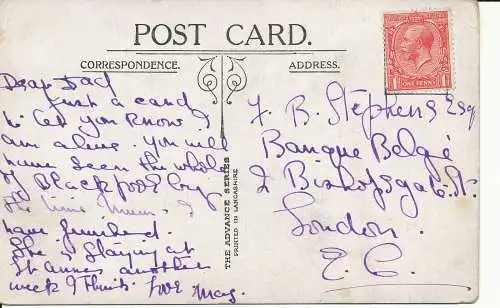 POST CARD.
CORRESPONDENCE.
ADDRESS.
Dear Dad
Just a card
to let you know I
am alive. You will
have seen the whole
of Blackpool by
the time Mum & I
have finished.
She is staying at
St Annes another
week I think. Love May.
THE ADVANCE SERIES
PRINTED IN LANCASHIRE
F. B. Stephens Esq
Banque Belge
2 Bishopsgate St.
London.
E. C.
1 ONE PENNY 1